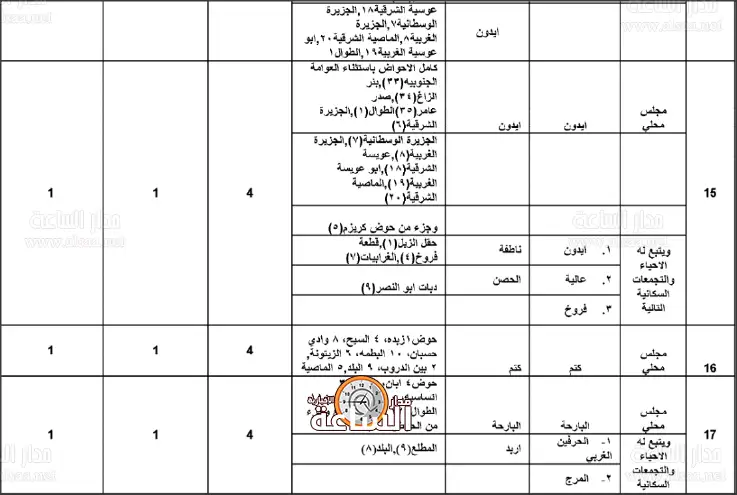 عوسية الشرقية١٨,الجزيرة
الوسطانية٧,الجزيرة
الغربية٨,الماصية الشرقية٢٠,ابو
عوسية الغربية١٩,الطوال١
ايدون
15
مجلس
محلي
ايدون
ايدون
كامل الاحواض باستثناء العوامة
الجنوبيه(٣٣),بئر
الزاغ(٣٤),صدر
عامر(٣٥)الطوال(١),الجزيرة
الشرقية(٦)
الجزيرة الوسطانية(٧),الجزيرة
الغربية(٨),عويسة
الشرقية(١٨),ابو عويسة
الغربية(١٩),الماصية
الشرقية(٢٠)
وجزء من حوض كريزم(٥)
4
1
1
ويتبع له
الاحياء
والتجمعات
السكانية
التالية
١. ايدون
ناطفة
حقل الزبل(١),قطعة
فروخ(٤),الغرابيات(٧)
٢. عالية
الحصن
دبات ابو النصر(٩)
٣. فروخ
16
مجلس
محلي
كتم
كتم
حوض١زبده, ٤ السيح, ٨ وادي
حسبان, ١٠ البطمه, ٦ الزيتونة,
٢ بين الدروب, ٩ البلد,٥ الماصية
4
1
1
17
مجلس
محلي
البارحة
البارحة
حوض٤ ابان,
الطوال
من
4
1
1
ويتبع له
الاحياء
والتجمعات
السكانية
١- الحرفين
الغربي
اربد
المطلع(٩),البلد(٨)
٢- المرج
مدار الساعة
www.alsaa.net